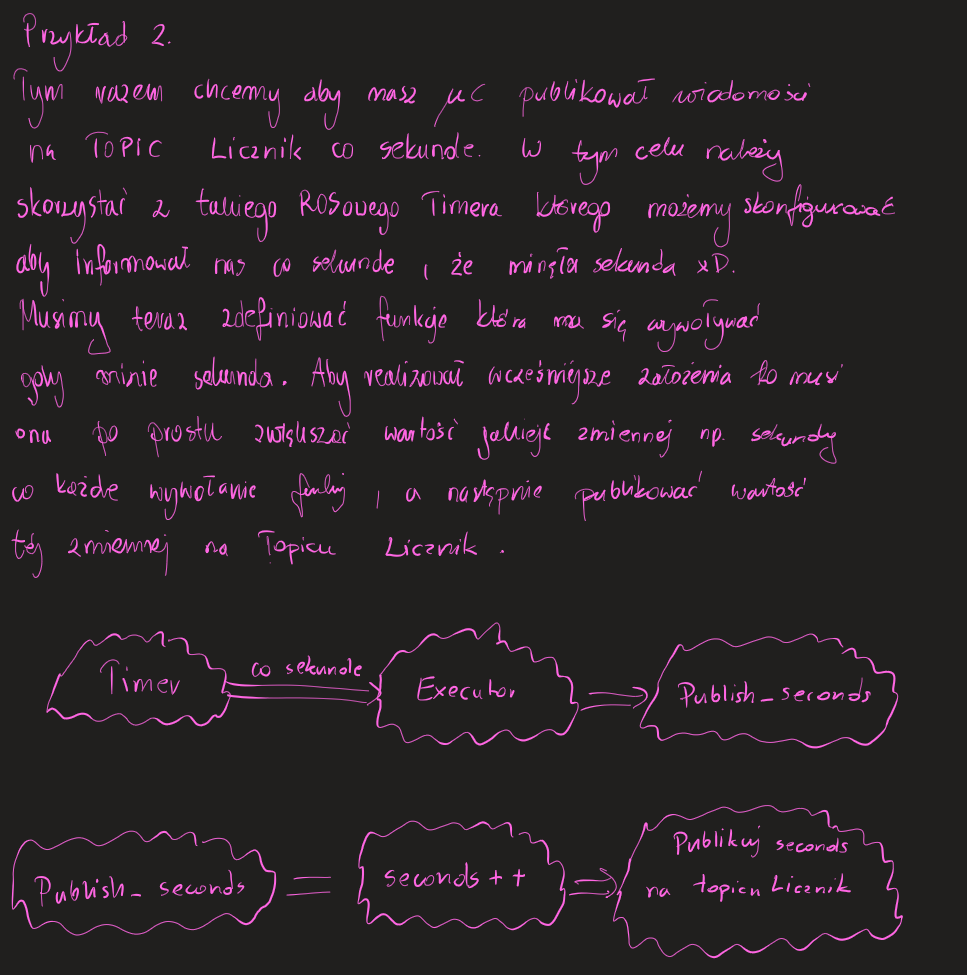 Przykład 2.
Tym razem chcemy aby nasz µC publikował wiadomości
na TOPIC Licznik co sekunde. W tym celu należy
skorzystać z takiego ROSowego Timera którego możemy skonfigurować
aby informował nas co sekunde, że minęła sekunda xD.
Musimy teraz zdefiniować funkcje która ma się wywoływać
gdy minie sekunda. Aby realizował wcześniejsze założenia to musi
ona po prostu zwiększać wartość jakiejś zmiennej np. sekundy
co każde wywołanie, a następnie publikować wartość
tej zmiennej na Topicu Licznik.
Timer co sekunde Executor Publish_seconds
Publish_seconds = seconds++ Publikuj seconds
na topicu Licznik